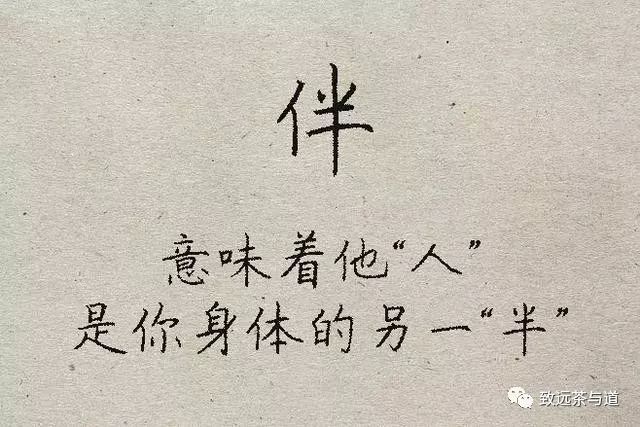 伴
意味着他“人”
是你身体的另一“半”
致远茶与道